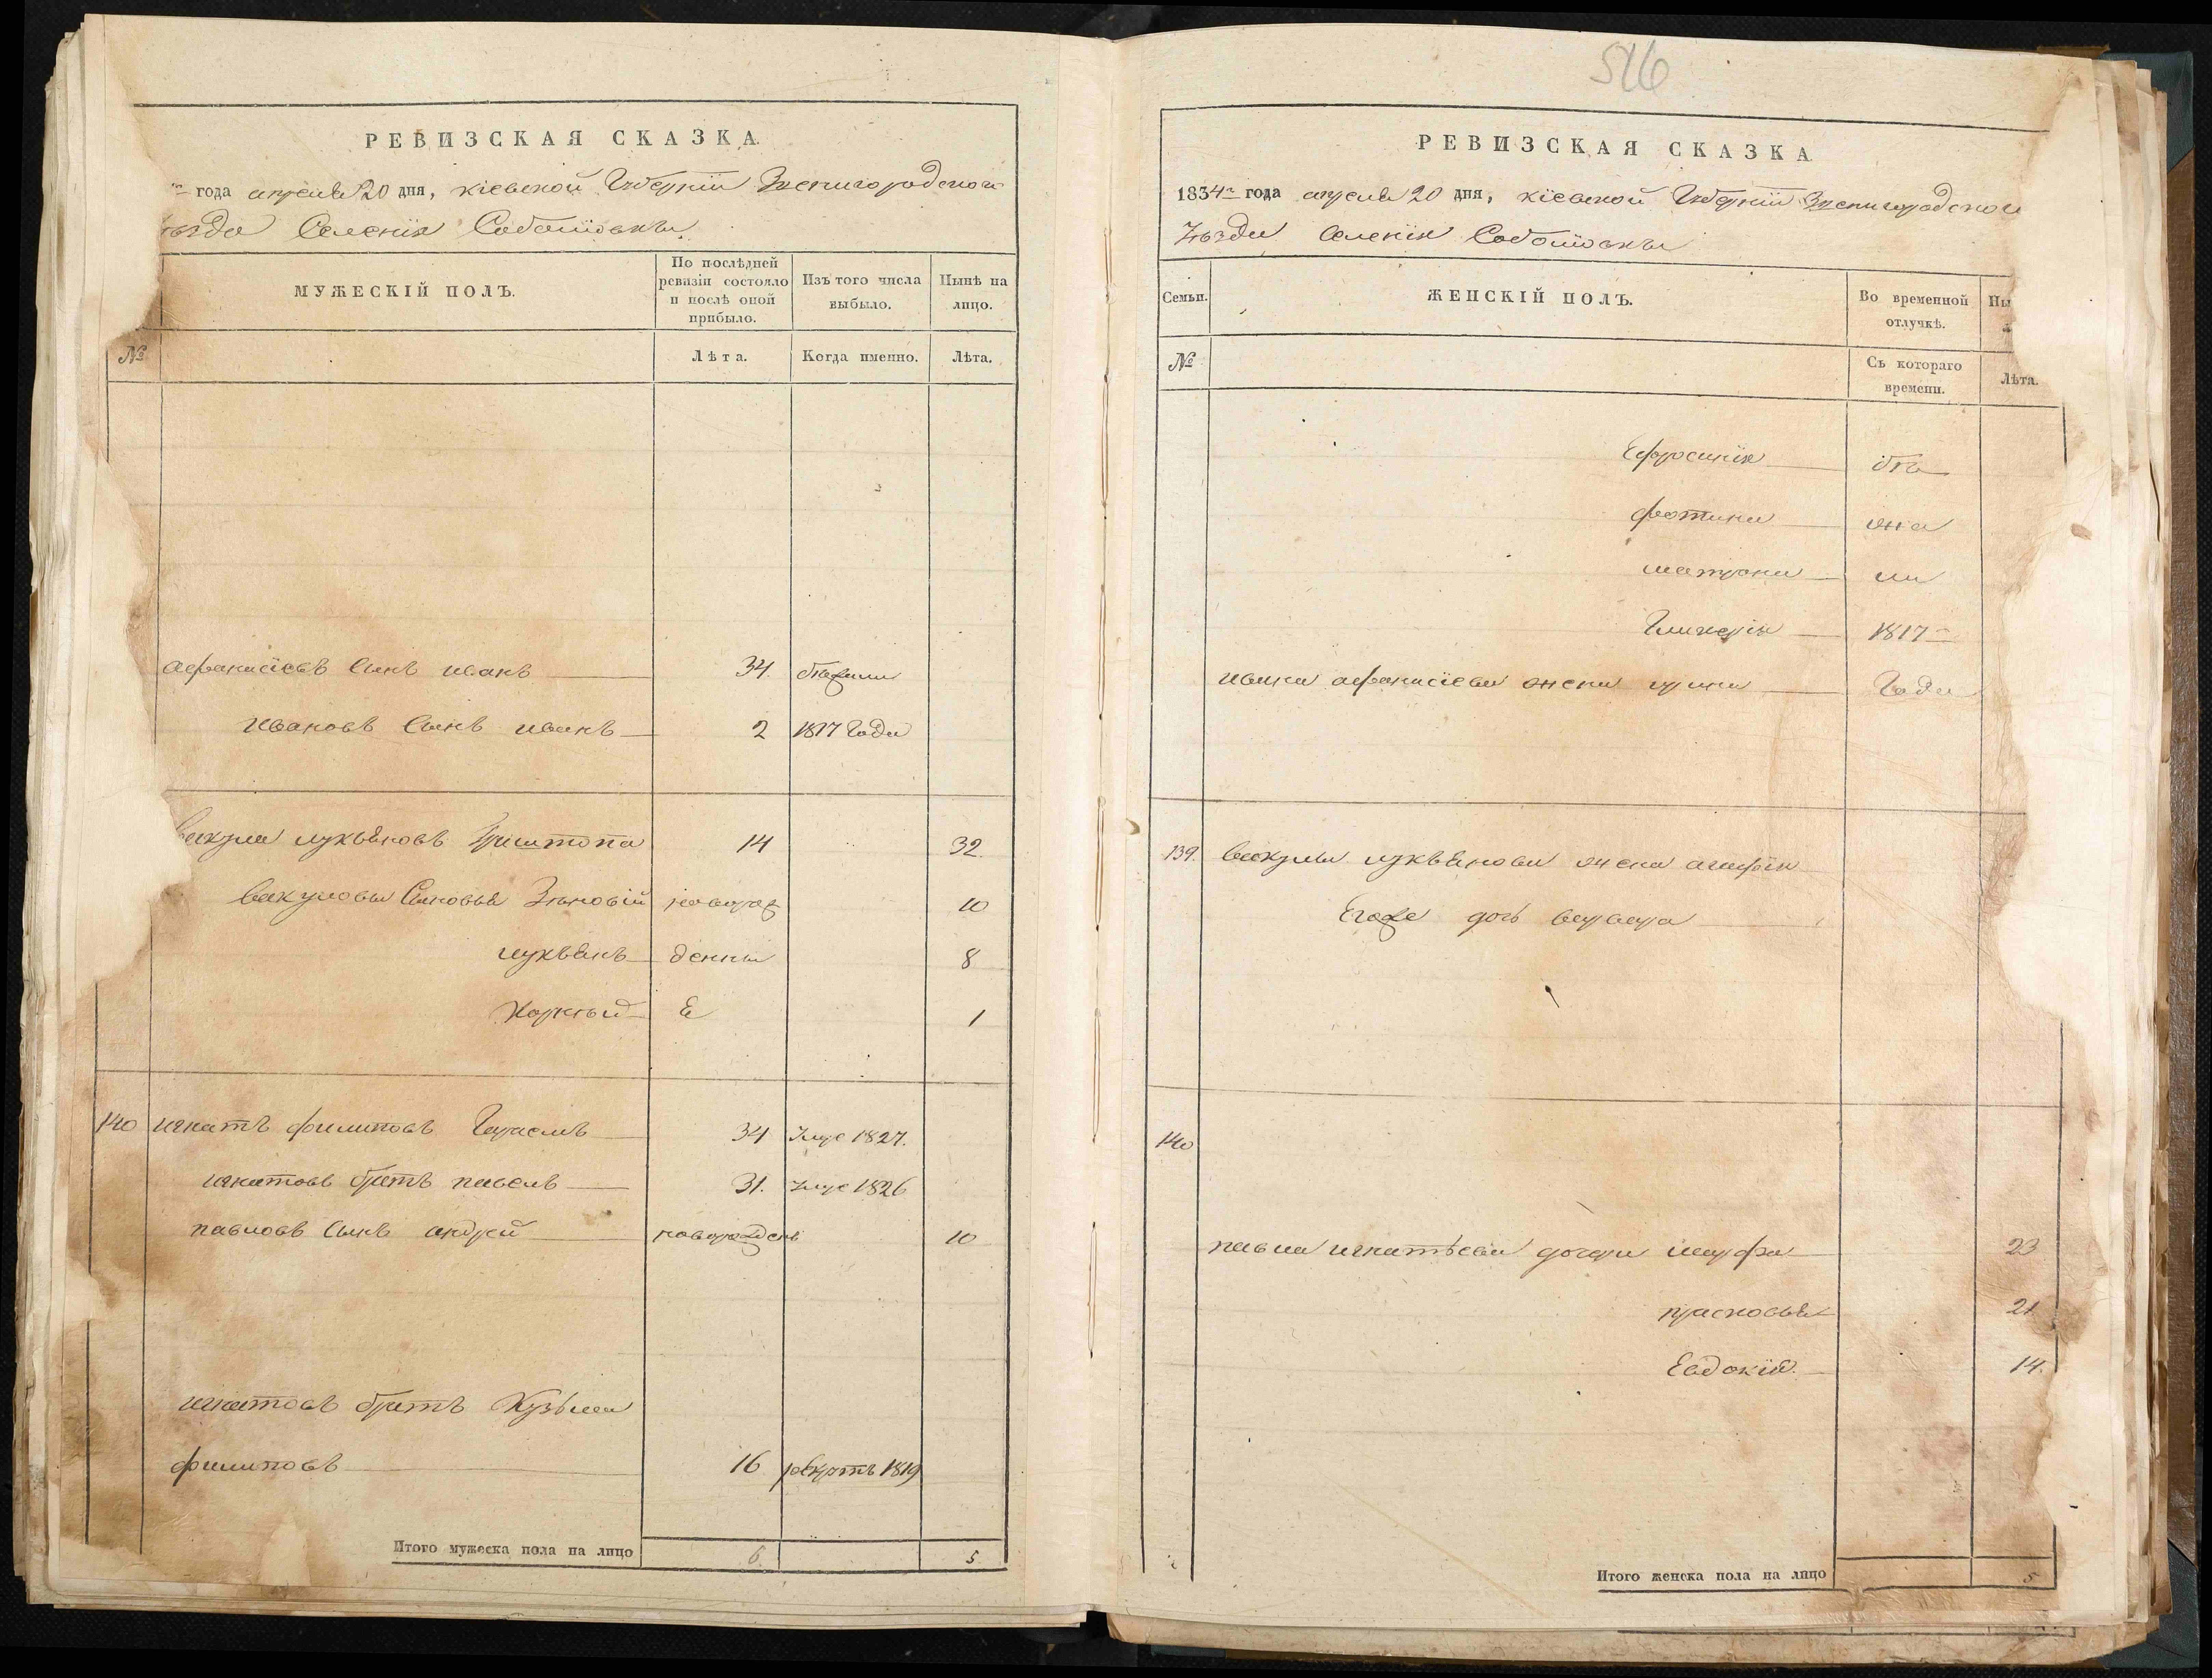 РЕВИЗСКАЯ СКАЗКА.
года апреля 20 дня, Кіевской Губерніи Звенигородского
уѣзда Селенія Соболювки
МУЖЕСКІЙ ПОЛЪ.
По послѣдней ревизіи состояло и послѣ оной прибыло.
Изъ того числа выбыло.
Нынѣ на лицо.
№
Лѣта.
Когда именно.
Лѣта.
афанасіевъ Сынъ иванъ 34.
ивановъ Сынъ иванъ 2 1817 Года
вакула лукьяновъ 14 32.
вакуловы Сыновья Зѣновій новорож 10
лукьянъ денны 8
Корнѣй Е 1
140 игнатъ филиповъ 34 Умре 1827.
игнатовъ братъ павелъ 31. Умре 1826
павловъ Сынъ андрей новорожденъ 10
игнатовъ братъ Кузьма
филиповъ 16 рекрутъ 1819
Итого мужеска пола на лицо 6. 5
516
РЕВИЗСКАЯ СКАЗКА
1834го года апреля 20 дня, Кіевской Губерніи Звенигородского
Уѣзда Селенія Соболювки
Семьи.
ЖЕНСКІЙ ПОЛЪ.
Во временной отлучкѣ.
Ны
№
Съ котораго времени.
Лѣта.
Ефросинія
фотина
матрона
Гликерія 1817
ивана афанасіева жена ирина Года
139. вакулы лукьянова жена агафія
Егоже дочь варвара
140
павла игнатьева дочери марфа 23
прасковья 21
Евдокія. 14.
Итого женска пола на лицо 5